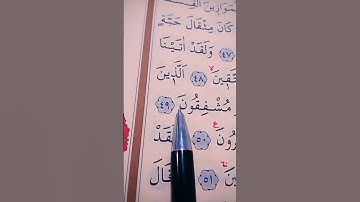 لْمَوَازِينَ الْقِسْ
كَانَ مِثْقَالَ حَبَّةٍ
﴿٤٧﴾ وَلَقَدْ اٰتَيْنَا
تَّقِينَ ﴿٤٨﴾ اَلَّذِينَ
مُشْفِقُونَ ﴿٤٩﴾
رُونَ ﴿٥٠﴾ قَدْ
ينَ ﴿٥١﴾ قَالَ